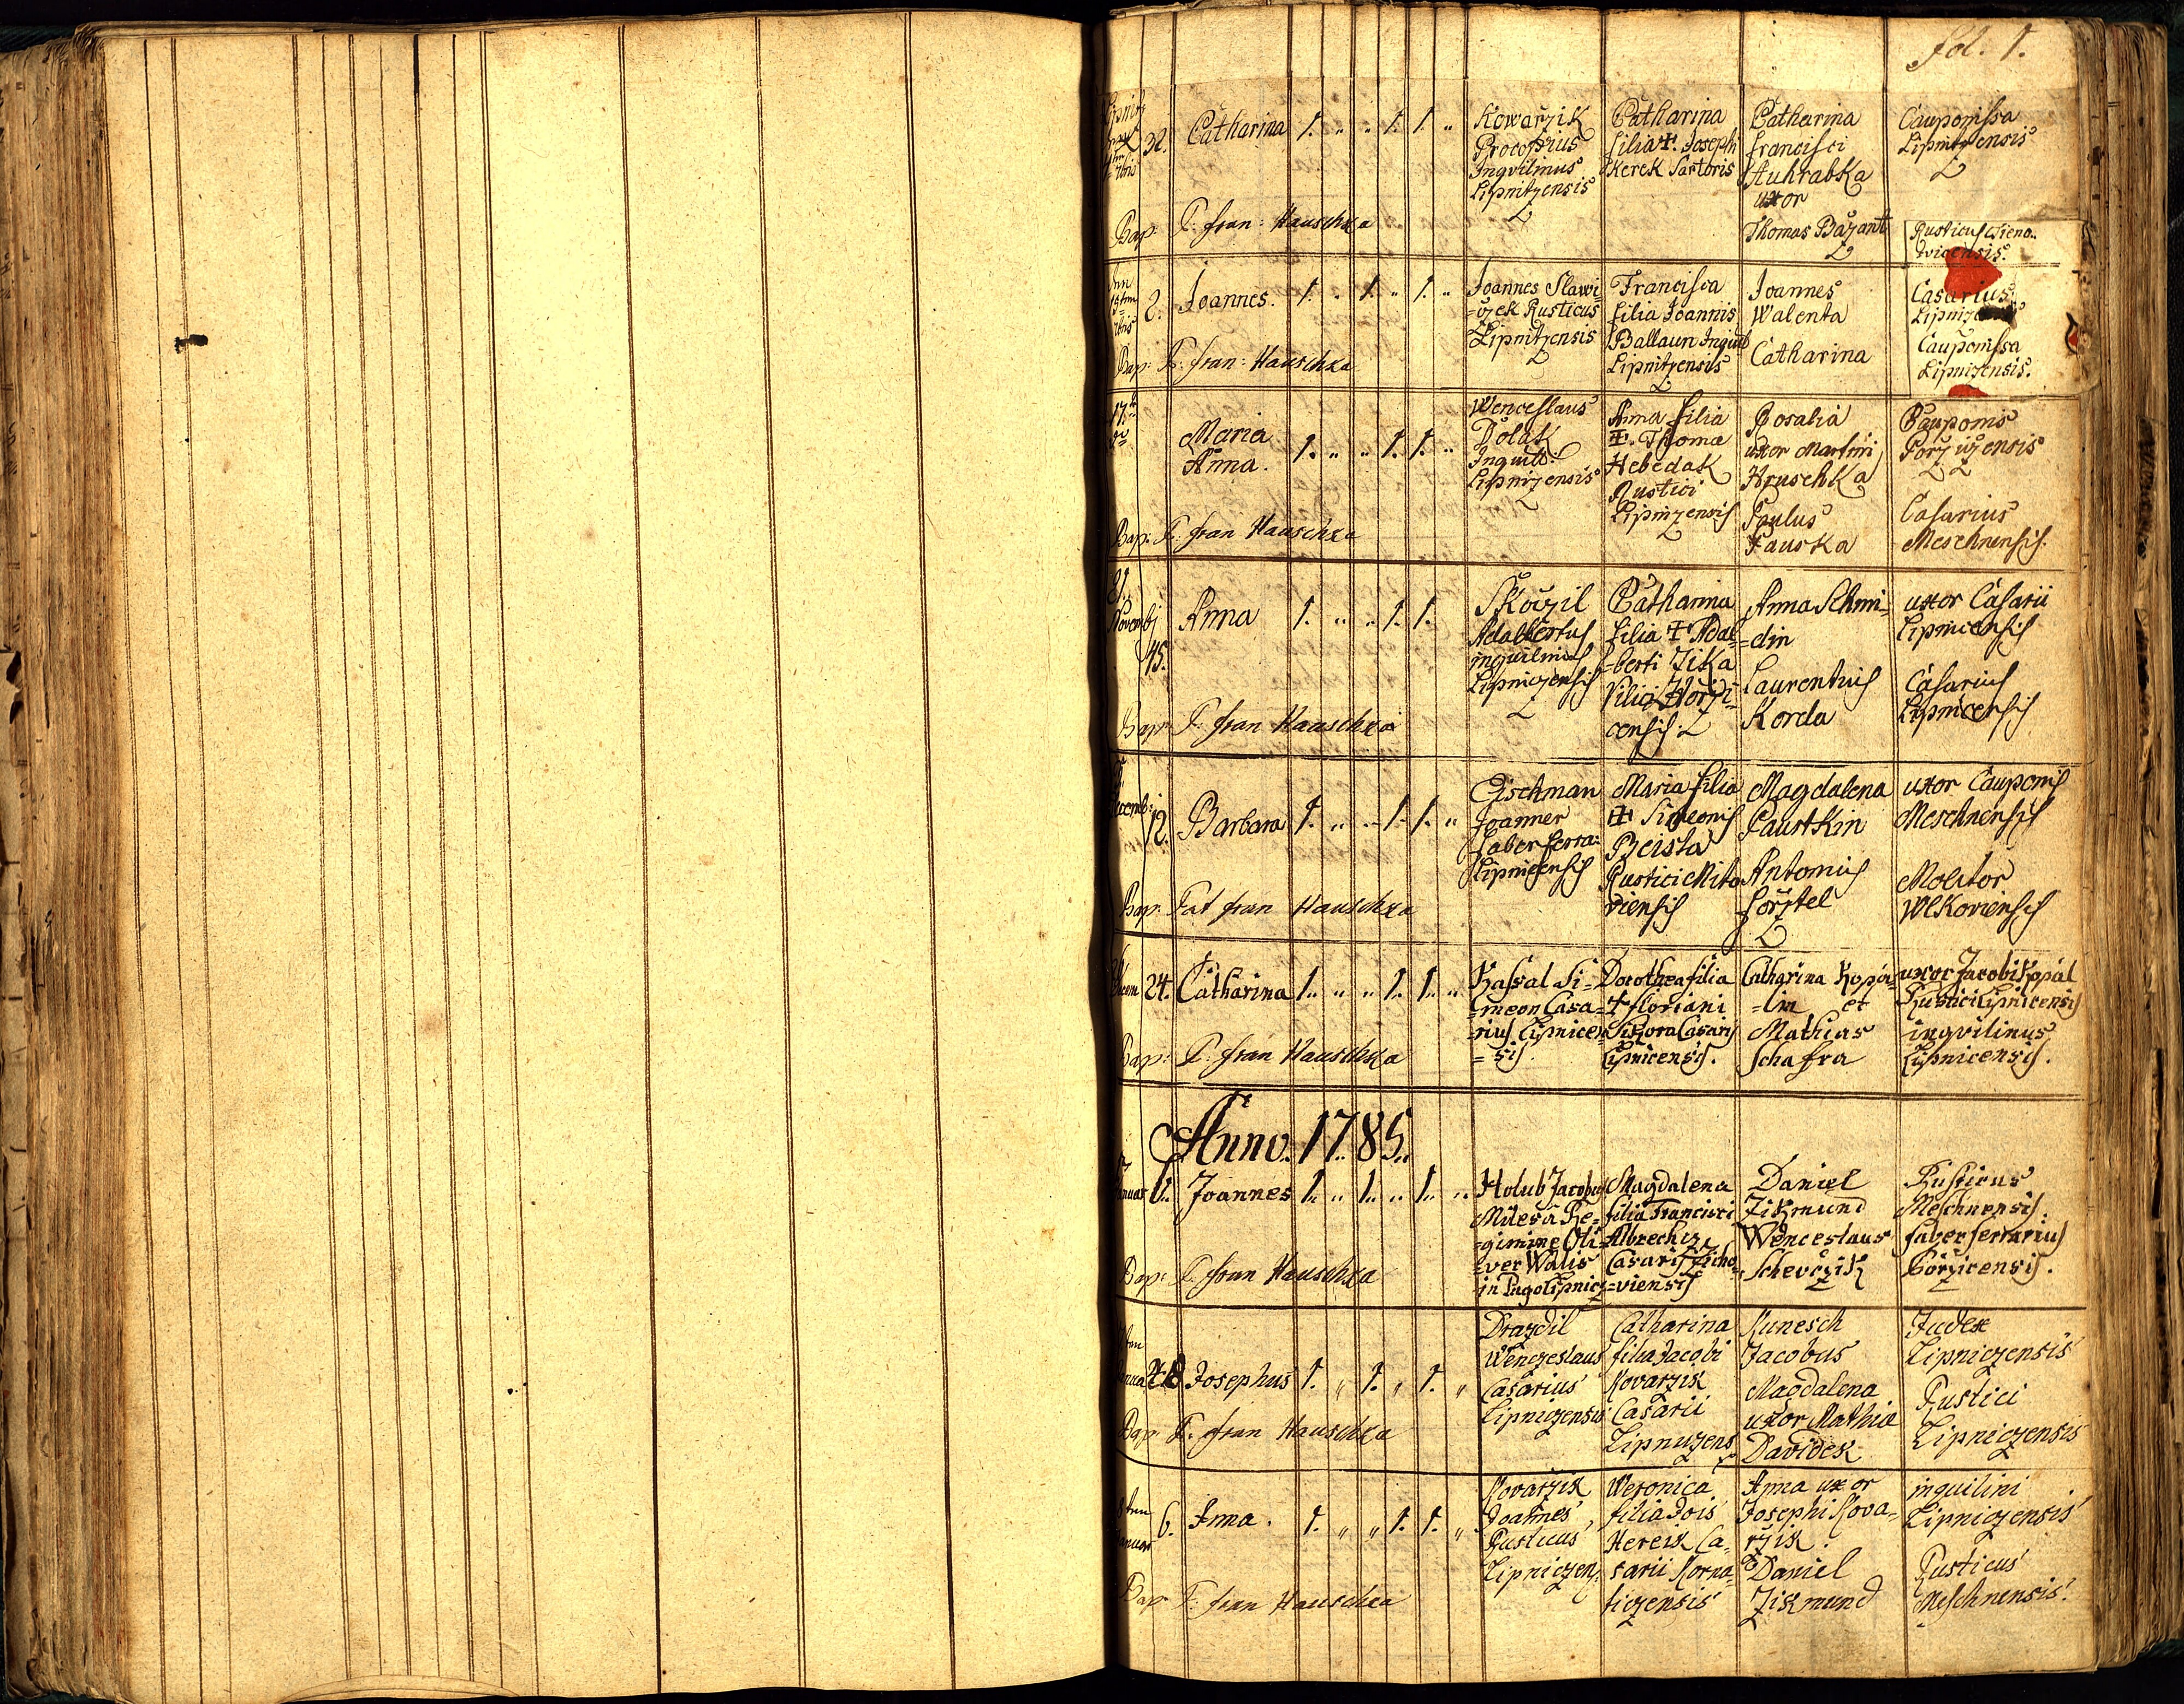 fol. 1.
32. Catharina 1. " " 1. 1. "
Kowarzik
Procopius
Inqvilinus
Lipnitzensis
Catharina
filia ‡. Joseph
Kerek Sartoris
Catharina
francisci
Auhrabka
uxor
Thomas Bazant
Cauponissa
Lipnitzensis
Rusticus
Bap: P. fran: Hauschka
2. Joannes. 1. " 1. " 1. "
Joannes Slawi=
=czek Rusticus
Lipnitzensis
Francisca
filia Joannis
Ballaun Inquil
Lipnitzensis
Joannes
Walenta
Catharina
Casarius
Cauponissa
Lipnizensis.
Bap: P. fran: Hauschka
17.
Maria
Anna. 1. " " 1. 1. "
Wenceslaus
Dolak
Inquili:
Lipnizensis
Anna filia
‡. Thomæ
Hebedak
Rustici
Lipnizensis
Rosalia
uxor Martini
Hruschka
Paulus
Fauska
Cauponis
Porzizensis
Casarius
Meschnensis.
Bap: P. fran Hauschka
21.
Novemb
45.
Anna 1. " " 1. 1.
Skoczil
Adalbertus
inquilinus
Lipniczensis
Catharina
filia ‡ Adal=
=berti Jika
Vilici Horzi=
censis
Anna Schmi=
=din
Laurentius
Korda
uxor Casarii
Lipnicensis
Casarius
Lipnicensis
Bap: P. fran Hauschka
12. Barbara 1. " " 1. 1. "
Eischman
Joannes
faber ferra:
Lipnicensis
Maria filia
‡ Simeonis
Beista
Rustici Mito
viensis
Magdalena
Faustkin
Antonius
forztel
uxor Cauponis
Meschnensis
Molitor
Wlkoviensis
Bap: Pat fran Hauschka
24. Catharina 1. " " 1. 1. "
Kassal Si=
=meon Casa=
rius Lipnicen
=sis
Dorothea filia
‡ floriani
Sikora Casarij
Lipnicensis.
Catharina Kopa=
=lin et
Mathias
Schafra
uxor Jacobi Kopal
Rustici Lipnicensis
inqvilinus
Lipnicensis.
Bap: P. fran Hauschka
Anno. 1785.
6. Joannes 1. " 1. " 1. "
Holub Jacobus
Miles a Re=
=gimine Oli=
=ver Walis
in Pago Lipnicz
Magdalena
filia Francisci
Albrecht
Casarij
=viensis
Daniel
Zikmund
Wenceslaus
Schevczik
Rusticus
Meschnensis.
faber ferrarius
Borzicensis.
Bap: P. fran Hauschka
Josephus 1. " 1. " 1. "
Drazdil
Wenczeslaus
Casarius
Lipniczensis
Catharina
filia Jacobi
Kovarzik
Casarii
Lipniczens
Kunesch
Jacobus
Magdalena
uxor Mathiæ
Davidek
Judex
Lipniczensis
Rustici
Lipniczensis
Bap: P. fran Hauschka
6. Anna. 1. " " 1. 1. "
Kovarzik
Joannes
Rusticus
Lipniczen:
Weronica
filia Jois
Hereik Ca=
sarii Korna=
ticzensis
Anna uxor
Josephi Kova=
rzik.
Daniel
Zikmund
inquilini
Lipniczensis
Rusticus
Meschnensis.
Bap P. fran Hauschka